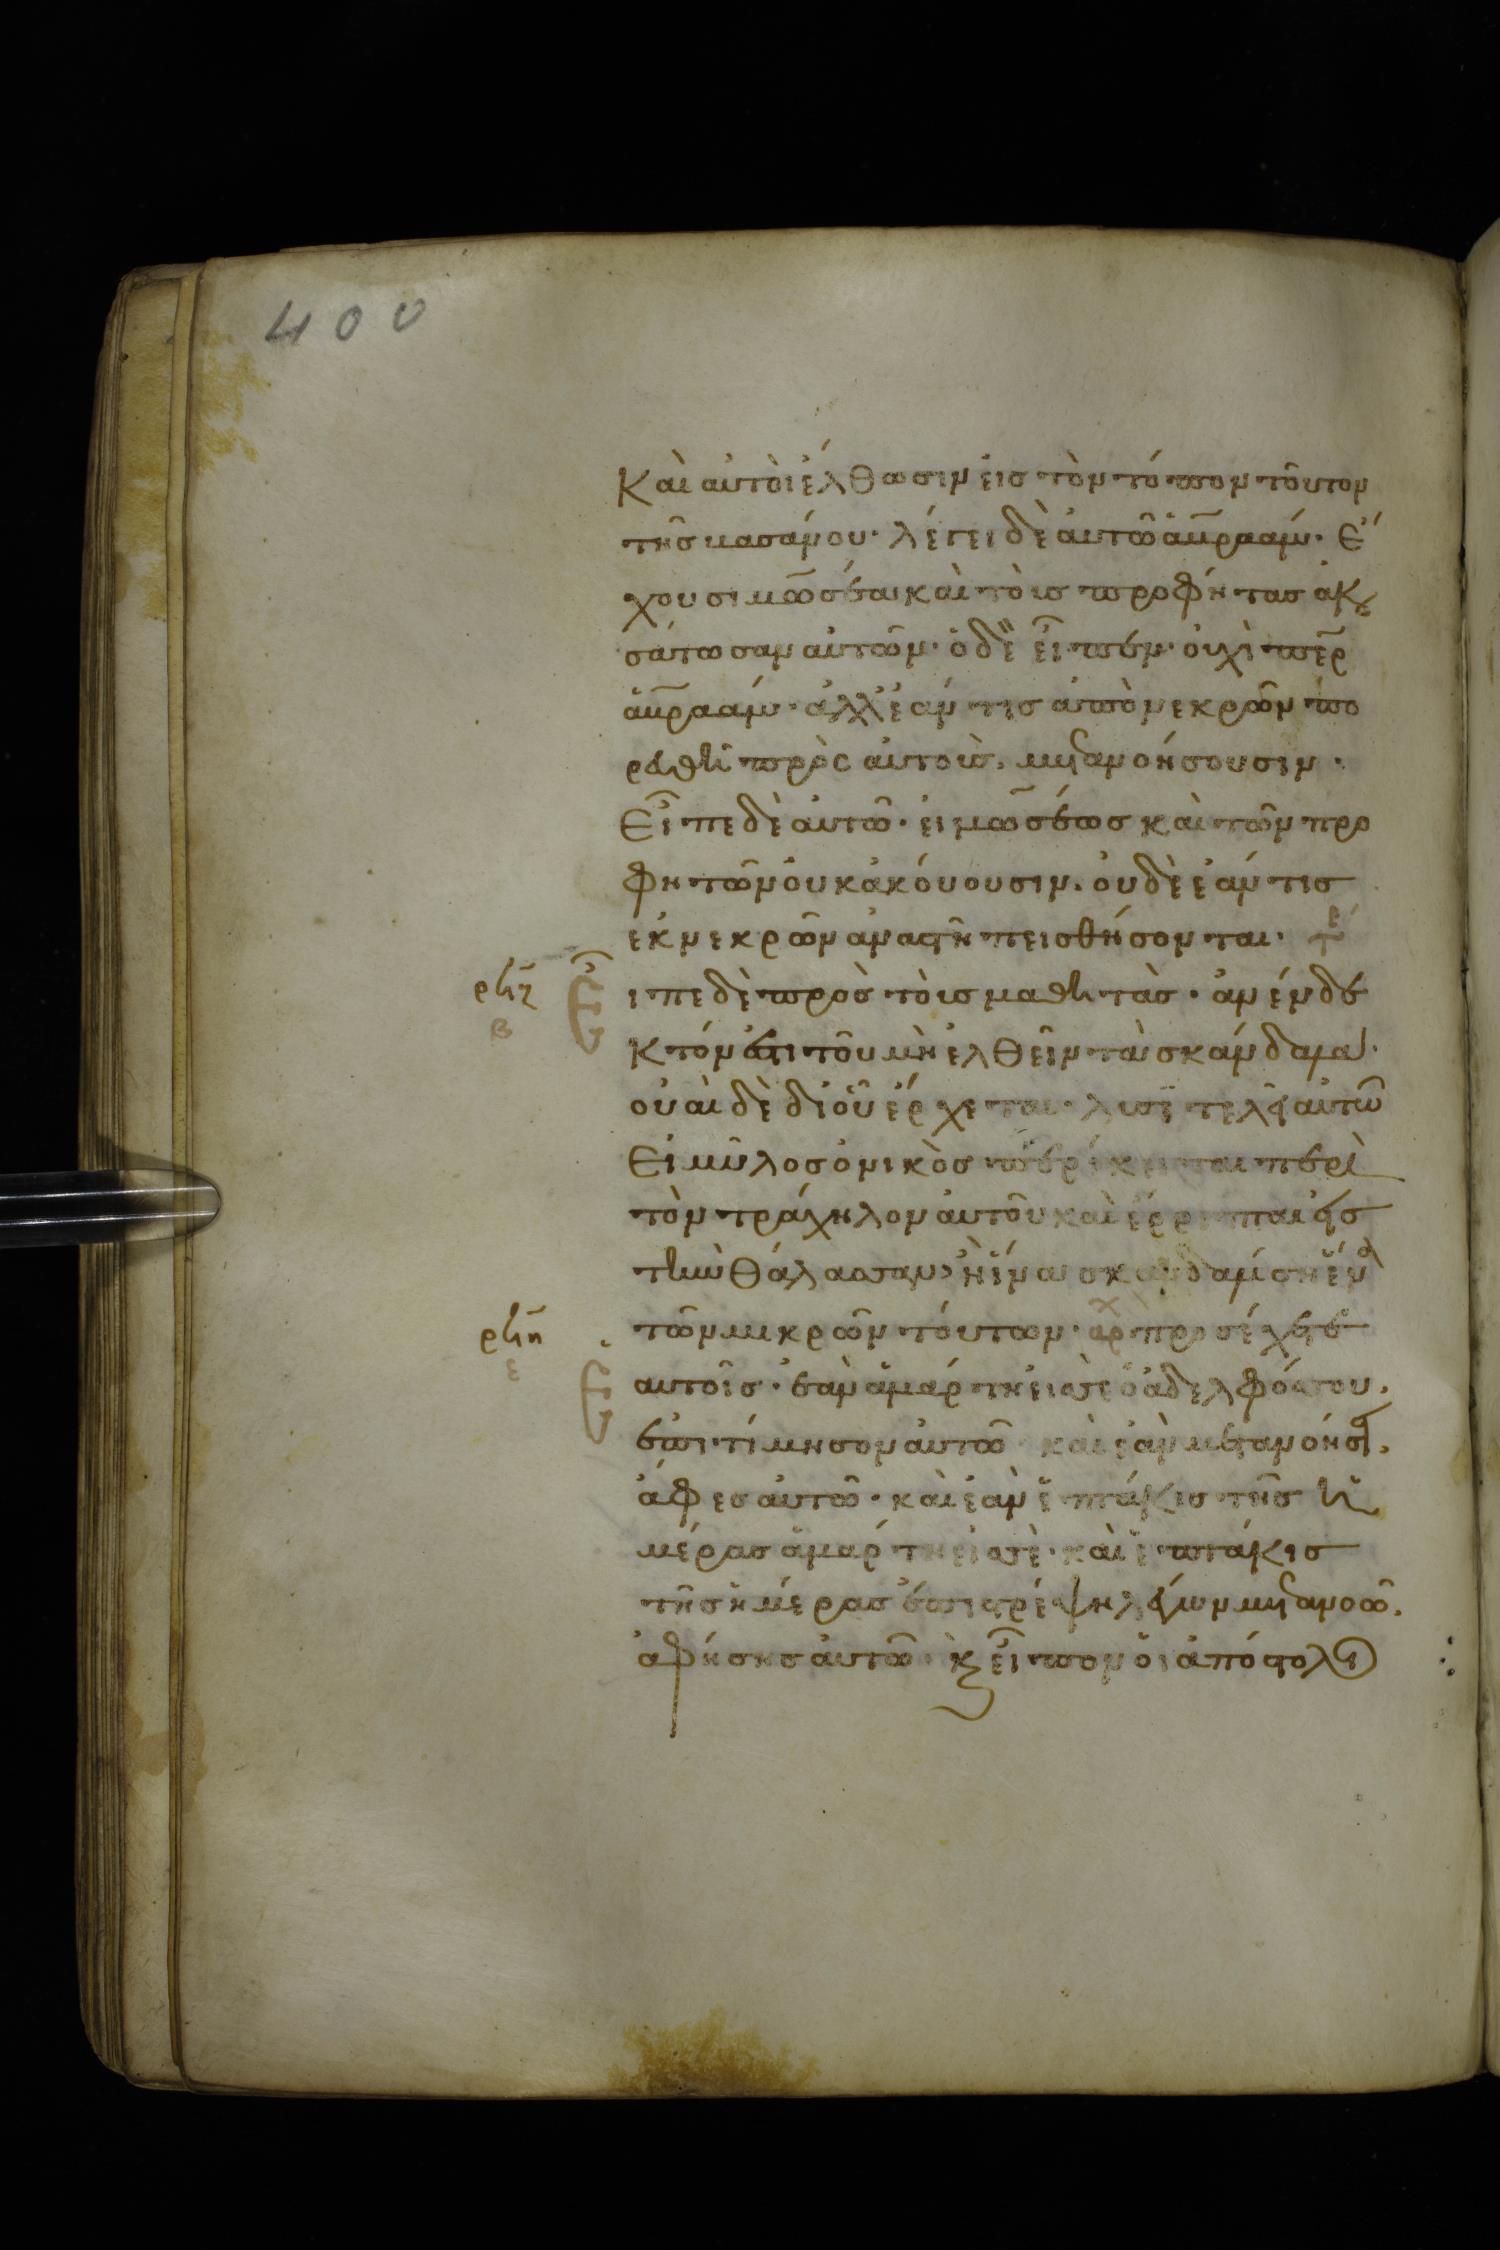 400
Καὶ αὐτοὶ ἔλθωσιν εἰς τὸν τόπον τοῦτον
τῆς βασάνου· λέγει δὲ αὐτῶ ἀβρααμ· Ἔ
χουσι μωσέαι καὶ τοὺς προφήτας ἀκου
σάτωσαν αὐτῶν· ὁ δὲ εἶπεν· οὐχὶ περ
ἀβρααμ· ἀλλ' ἐάν τις ἀπὸ νεκρῶν πο
ρευθῆ πρὸς αὐτοὺς, μετανοήσουσιν·
Εἶπε δὲ αὐτῶ· εἰ μωσέως καὶ τῶν προ
φητῶν οὐκ ἀκούουσιν· οὐδὲ ἐάν τις
ἐκ νεκρῶν ἀναστῆ πεισθήσονται· τε
ρϟζ Εἶ
ιπε δὲ πρὸς τοὺς μαθητὰς· ἀνένδε
β
κτόν ἐστι τοῦ μὴ ἐλθεῖν τὰ σκάνδαλα·
οὐαὶ δὲ δι' οὗ ἔρχεται· λυσιτελεῖ αὐτῶ
Εἰ μῦλος ὀνικὸς περίκειται περὶ
τὸν τράχηλον αὐτοῦ καὶ ἔρριπται εἰς
τὴν θάλασσαν· ἢ ἵνα σκανδαλίση ἕνα
ρϟη τῶν μικρῶν τούτων· αρχ προσέχετε
ε Ἑ
αυτοῖς· ἐὰν ἁμάρτη εἰς σὲ ὁ ἀδελφός σου,
ἐπιτίμησον αὐτῶ· καὶ ἐὰν μετανοήση,
ἄφες αὐτῶ· καὶ ἐὰν ἑπτάκις τῆς ἡ
μέρας ἁμάρτη εἰς σὲ· καὶ ἑπτάκις
τῆς ἡμέρας ἐπιστρέψη λέγων μετανοῶ,
ἀφήσεις αὐτῶ· κ εἶπον οἱ ἀπόστολοι